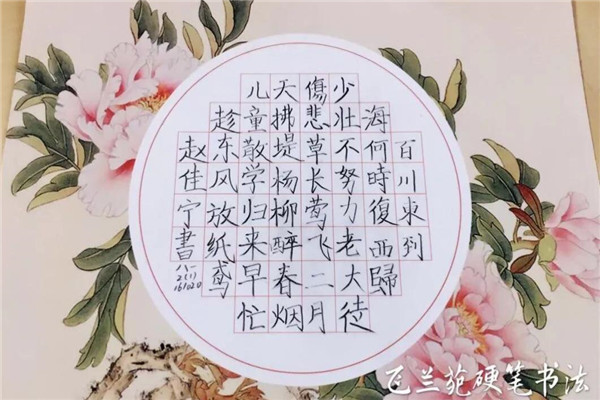 百川東到
海何時復西歸
少壮不努力老大徒
傷悲草长莺飞二月
天拂堤杨柳醉春烟
儿童散学归来早忙
趁东风放纸鸢
赵佳宁書
八一
2(1)
161020
飞兰苑硬笔书法